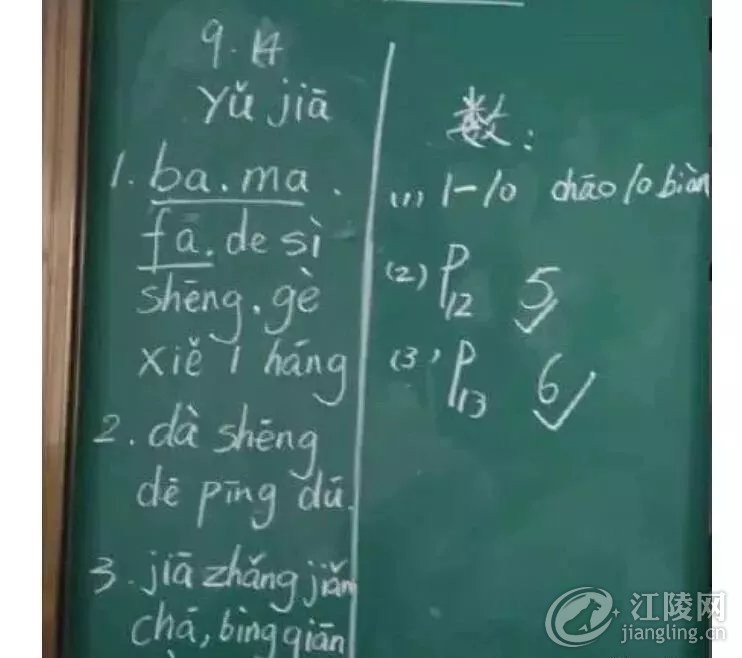 9.14
Yǔ jiā
1. ba. ma.
fā. de sì
shēng. gè
xiě 1 háng
2. dà shēng
dē pīng dū.
3. jiā zhǎng jiǎn
chá, bìng qiān
数:
(1) 1-10 chāo 10 biàn
(2) P12 5
(3) P13 6
江陵网
jiangling.cn